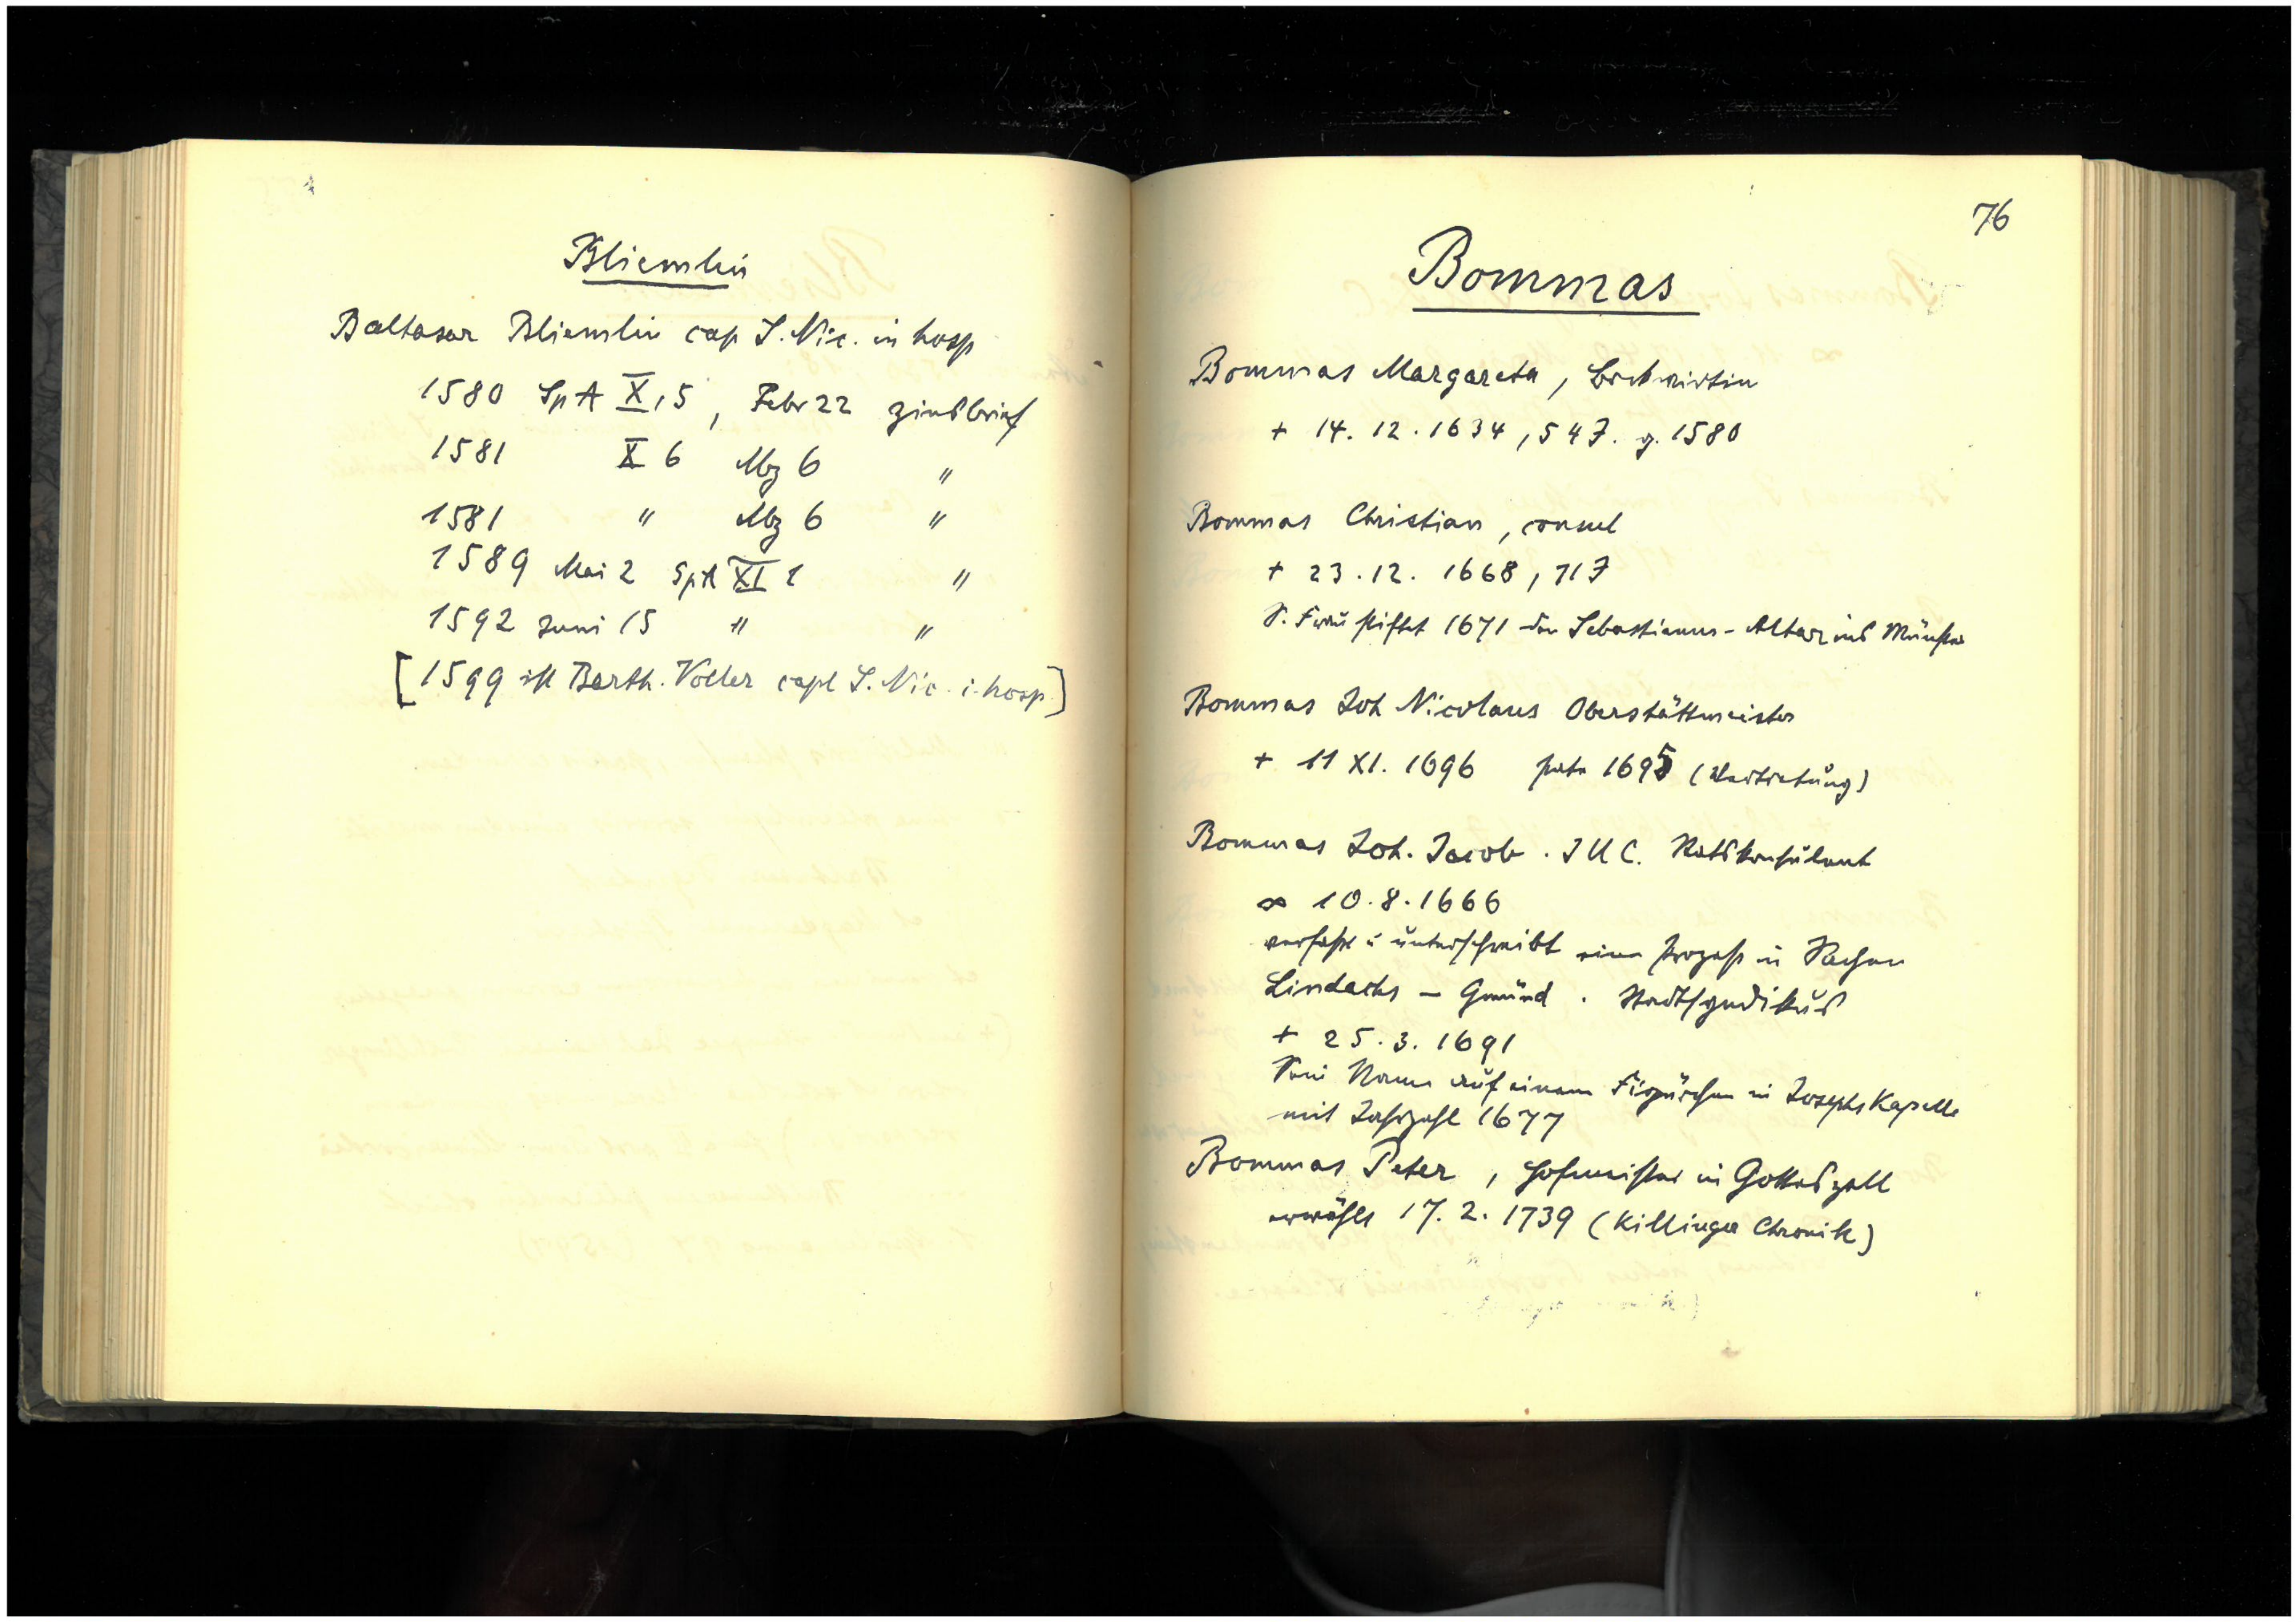 Bliemlin
Baltasar Bliemlin cap S. Nic. in hosp
1580 SpA X, 5, Febr 22 Zinsbrief
1581 X 6 Mz 6 "
1581 " Mz 6 "
1589 Mai 2 SpA XI 1 "
1592 Juni 15 " "
[1599 ist Barth. Voller capl S. Nic. i. hosp.]
76
Bommas
Bommas Margareta,
+ 14. 12. 1634, 54 J. g. 1580
Bommas Christian, consul
+ 23. 12. 1668, 71 J
S. Frau stiftet 1671 den Sebastianus-Altar ins Münster
Bommas Joh Nicolaus Oberstättmeister
+ 11 XI. 1696 1695 (Vertretung)
Bommas Joh. Jacob. I U C. Ratskonsulent
∞ 10. 8. 1666
verfaßt u unterschreibt einen Prozeß in Sachen
Lindachs – Gmünd. Stadtsyndikus
+ 25. 3. 1691
Sein Name auf einem Figürchen in Josephs Kapelle
mit Jahrzahl 1677
Bommas Peter, Hofmeister in Gotteszell
erwählt 17. 2. 1739 (Killinger Chronik)